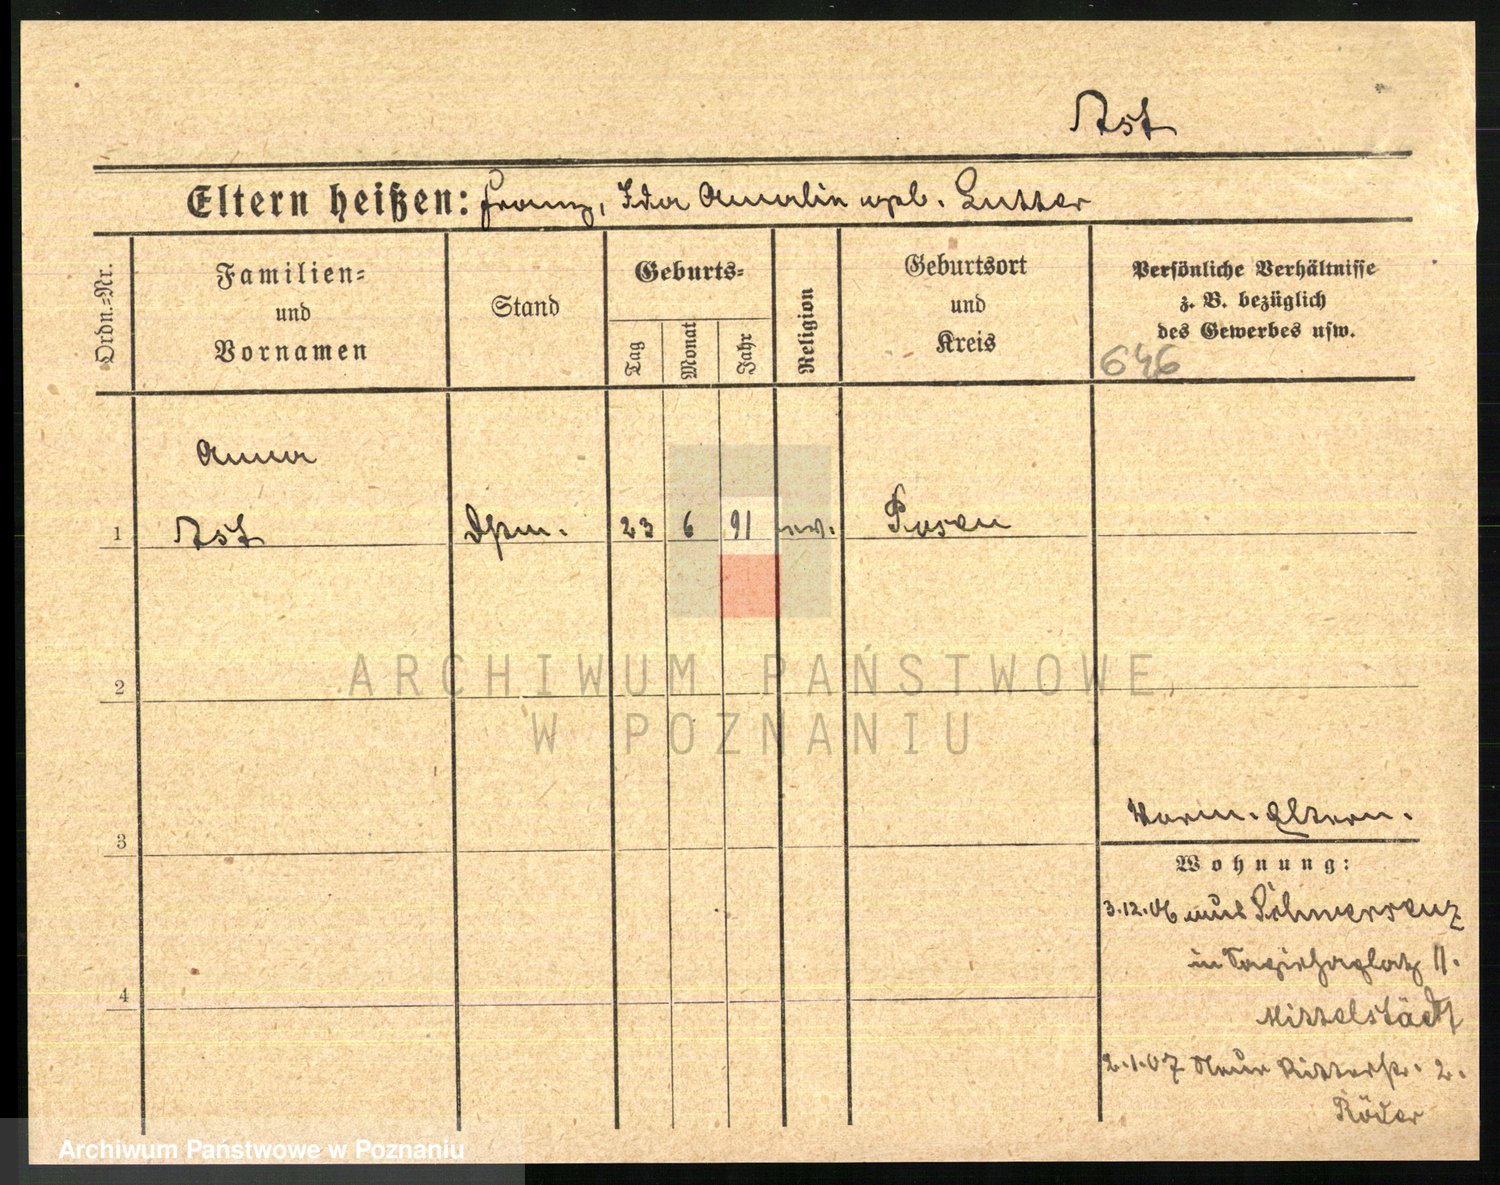 Ast
Eltern heißen: Franz, Ida Amalie geb. Lutter
Ordn.-Nr.
Familien-
und
Vornamen
Stand
Geburts-
Tag
Monat
Jahr
Religion
Geburtsort
und
Kreis
Persönliche Verhältnisse
z. B. bezüglich
des Gewerbes usw.
646
Anna
1 Ast 23 6 91 ev. Posen
2
3
4
Vorm. Eltern.
Wohnung:
3.12.06 aus Schwersenz
in Sapiehaplatz 11.
Mittelstädt
2.1.07 Neue Ritterstr. 2.
Röder
ARCHIWUM PAŃSTWOWE
W POZNANIU
Archiwum Państwowe w Poznaniu